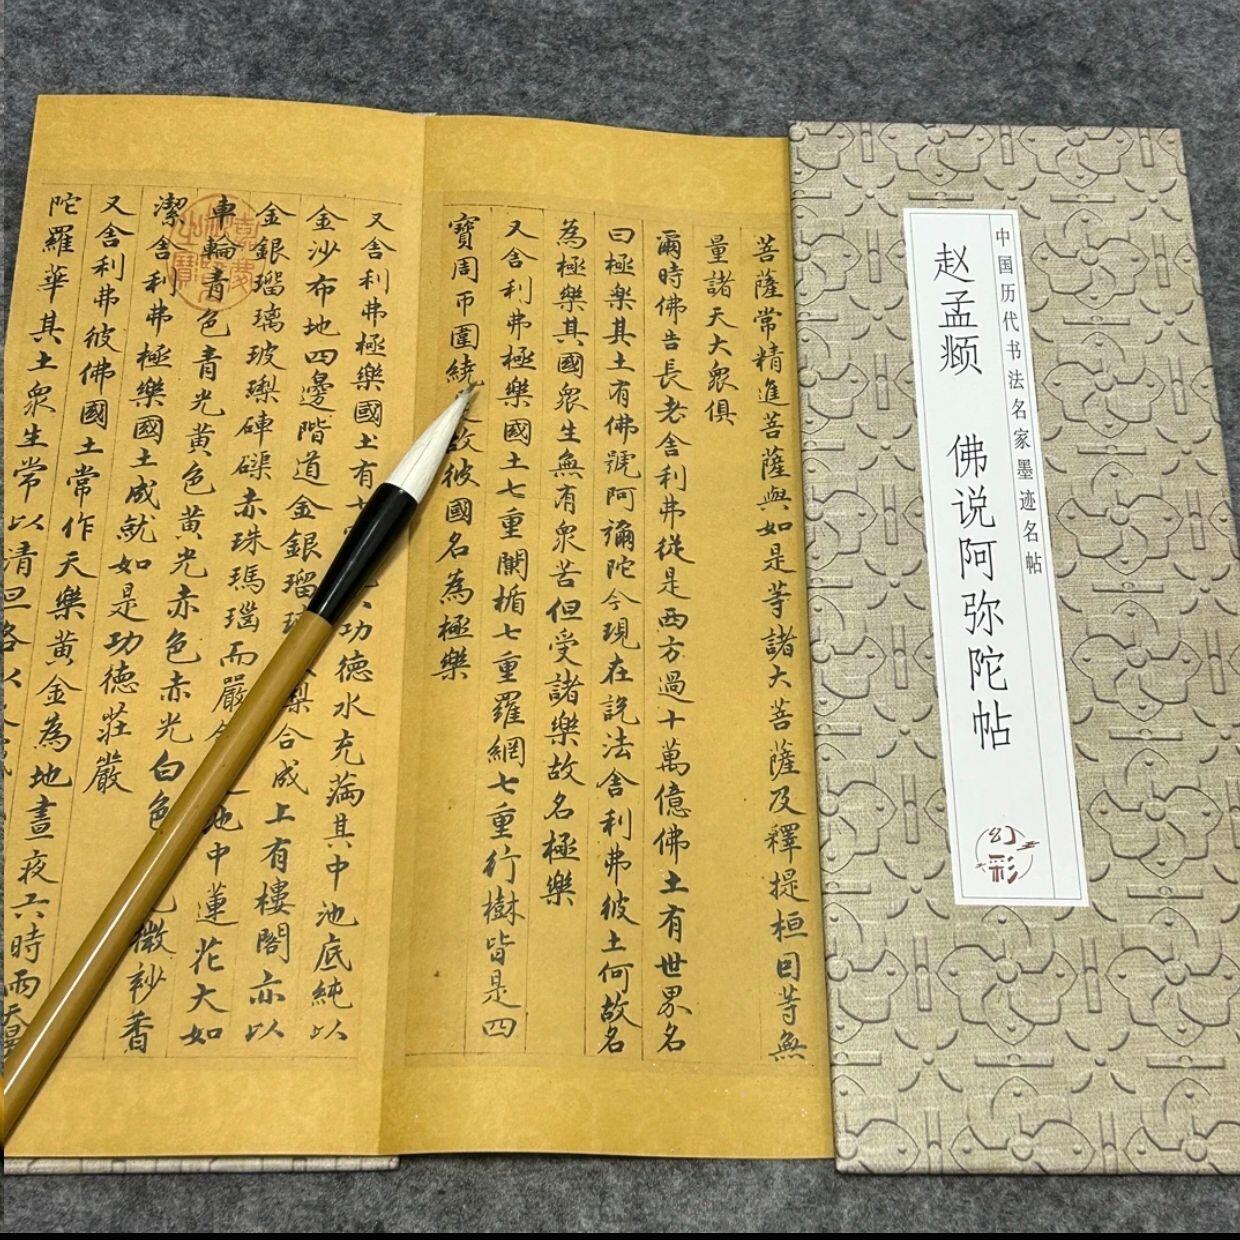 中国历代书法名家墨迹名帖
赵孟𫖯 佛说阿弥陀帖
幻彩
菩薩常精進菩薩與如是等諸大菩薩及釋提桓因等無
量諸天大衆俱
爾時佛告長老舍利弗從是西方過十萬億佛土有世界名
曰極樂其土有佛號阿彌陀今現在説法舍利弗彼土何故名
為極樂其國衆生無有衆苦但受諸樂故名極樂
又舍利弗極樂國土七重闌楯七重羅網七重行樹皆是四
寶周帀圍繞故彼國名為極樂
又舍利弗極樂國土有七功德水充滿其中池底純以
金沙布地四邊階道金銀瑠瓈合成上有樓閣亦以
金銀瑠璃玻瓈硨磲赤珠瑪瑙而嚴池中蓮花大如
車輪青色青光黄色黄光赤色赤光白色微妙香
潔舍利弗極樂國土成就如是功德莊嚴
又舍利弗彼佛國土常作天樂黄金為地晝夜六時雨天曼
陀羅華其土衆生常以清旦各以